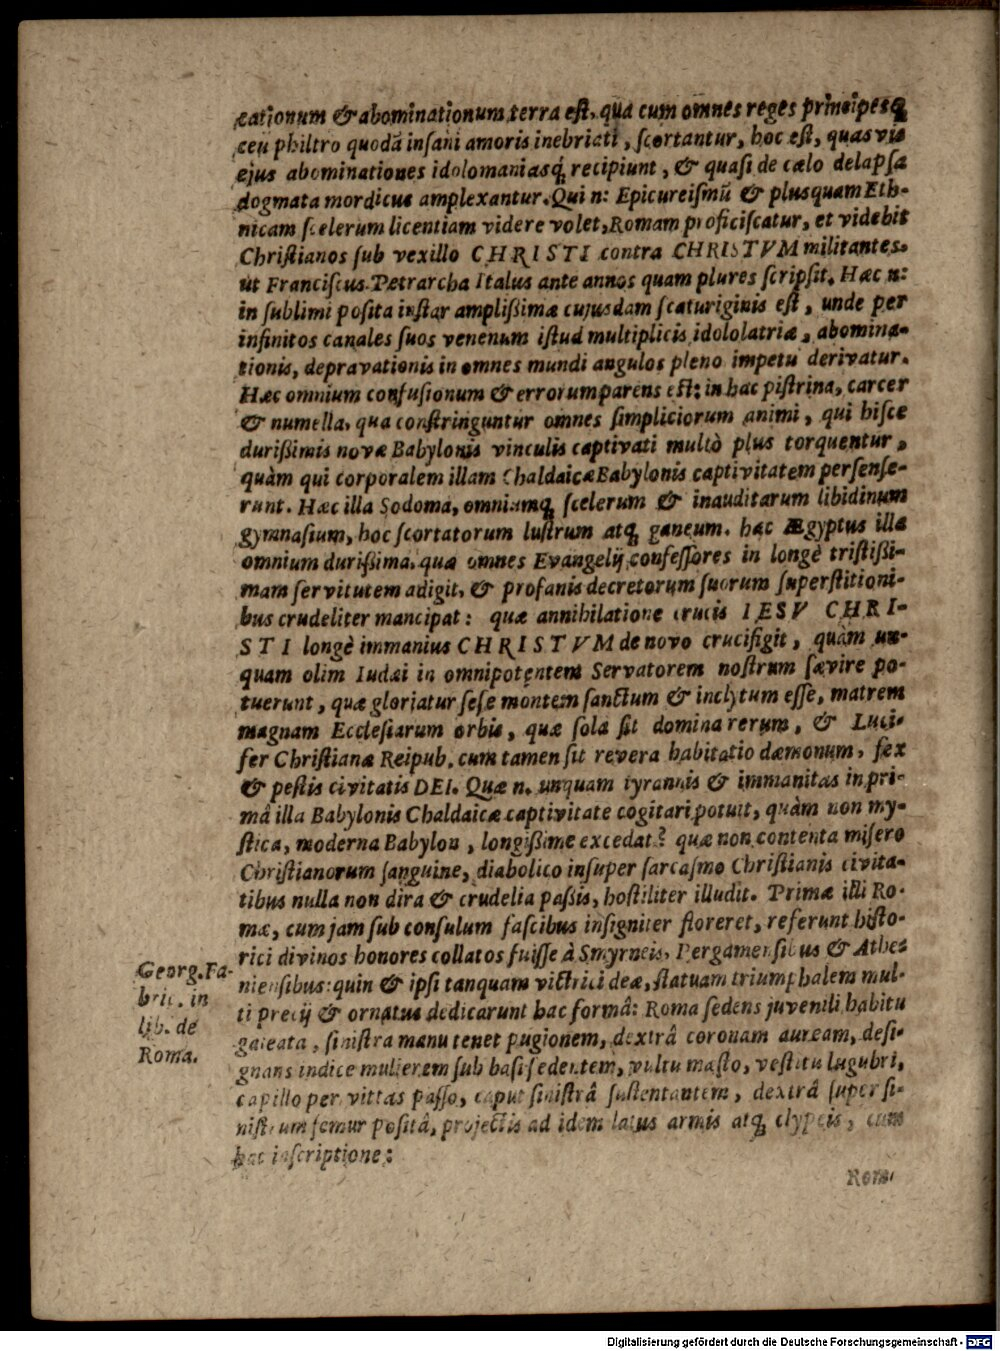 cationum & abominationum terra est, qua cum omnes reges principesq́
ceu philtro quodã insani amoris inebriati, scortantur, hoc est, quasvis
ejus abominationes idolomaniasq́ recipiunt, & quasi de cælo delapsa
dogmata mordicus amplexantur. Qui n: Epicureismũ & plusquam Eth-
nicam scelerum licentiam videre volet, Romam proficiscatur, et videbit
Christianos sub vexillo CHRISTI contra CHRISTVM militantes.
ut Franciscus Petrarcha Italus ante annos quam plures scripsit. Hæc n:
in sublimi posita instar amplißimæ cujusdam scaturiginis est, unde per
infinitos canales suos venenum istud multiplicis idololatriæ, abomina-
tionis, depravationis in omnes mundi angulos pleno impetu derivatur.
Hæc omnium confusionum & errorum parens est: in hac pistrina, carcer
& numella, qua constringuntur omnes simpliciorum animi, qui hisce
durißimis novæ Babylonis vinculis captivati multò plus torquentur,
quàm qui corporalem illam Chaldaicæ Babylonis captivitatem persense-
runt. Hæc illa Sodoma, omniumq́ scelerum & inauditarum libidinum
gymnasium, hoc scortatorum lustrum atq́ ganeum. hæc Ægyptus illa
omnium durißima, qua omnes Evangelij confessores in longè tristißi-
mam servitutem adigit, & profanis decretorum suorum superstitioni-
bus crudeliter mancipat: quæ annihilatione crucis IESV CHRI-
STI longè immanius CHRISTVM de novo crucifigit, quàm un-
quam olim Iudæi in omnipotentem Servatorem nostrum sævire po-
tuerunt, quæ gloriatur sese montem sanctum & inclytum esse, matrem
magnam Ecclesiarum orbis, quæ sola sit domina rerum, & Luci-
fer Christianæ Reipub. cum tamen sit revera habitatio dæmonum, fex
& pestis civitatis DEI. Quæ n. unquam tyrannis & immanitas in pri-
mâ illa Babylonis Chaldaicæ captivitate cogitari potuit, quàm non my-
stica, moderna Babylon, longißime excedat? quæ non contenta misero
Christianorum sanguine, diabolico insuper sarcasmo Christianis civita-
tibus nulla non dira & crudelia paßis, hostiliter illudit. Primæ illi Ro-
mæ, cum jam sub consulum fascibus insigniter floreret, referunt histo-
rici divinos honores collatos fuisse à Smyrneis, Pergamensibus & Athe-
niensibus: quin & ipsi tanquam victrici deæ, statuam triumphalem mul-
ti precij & ornatus dedicarunt hac formâ: Roma sedens juvenili habitu
galeata, sinistra manu tenet pugionem, dextrâ coronam auream, desi-
gnans indice mulierem sub basi sedentem, vultu mæsto, vestitu lugubri,
capillo per vittas passo, caput sinistrâ sustentantem, dextrâ super si-
nistrum femur positâ, projectis ad idem latus armis atq́ clypeis, cum
hac inscriptione:
Georg. Fa-
bric. in
lib. de
Roma.
Roma